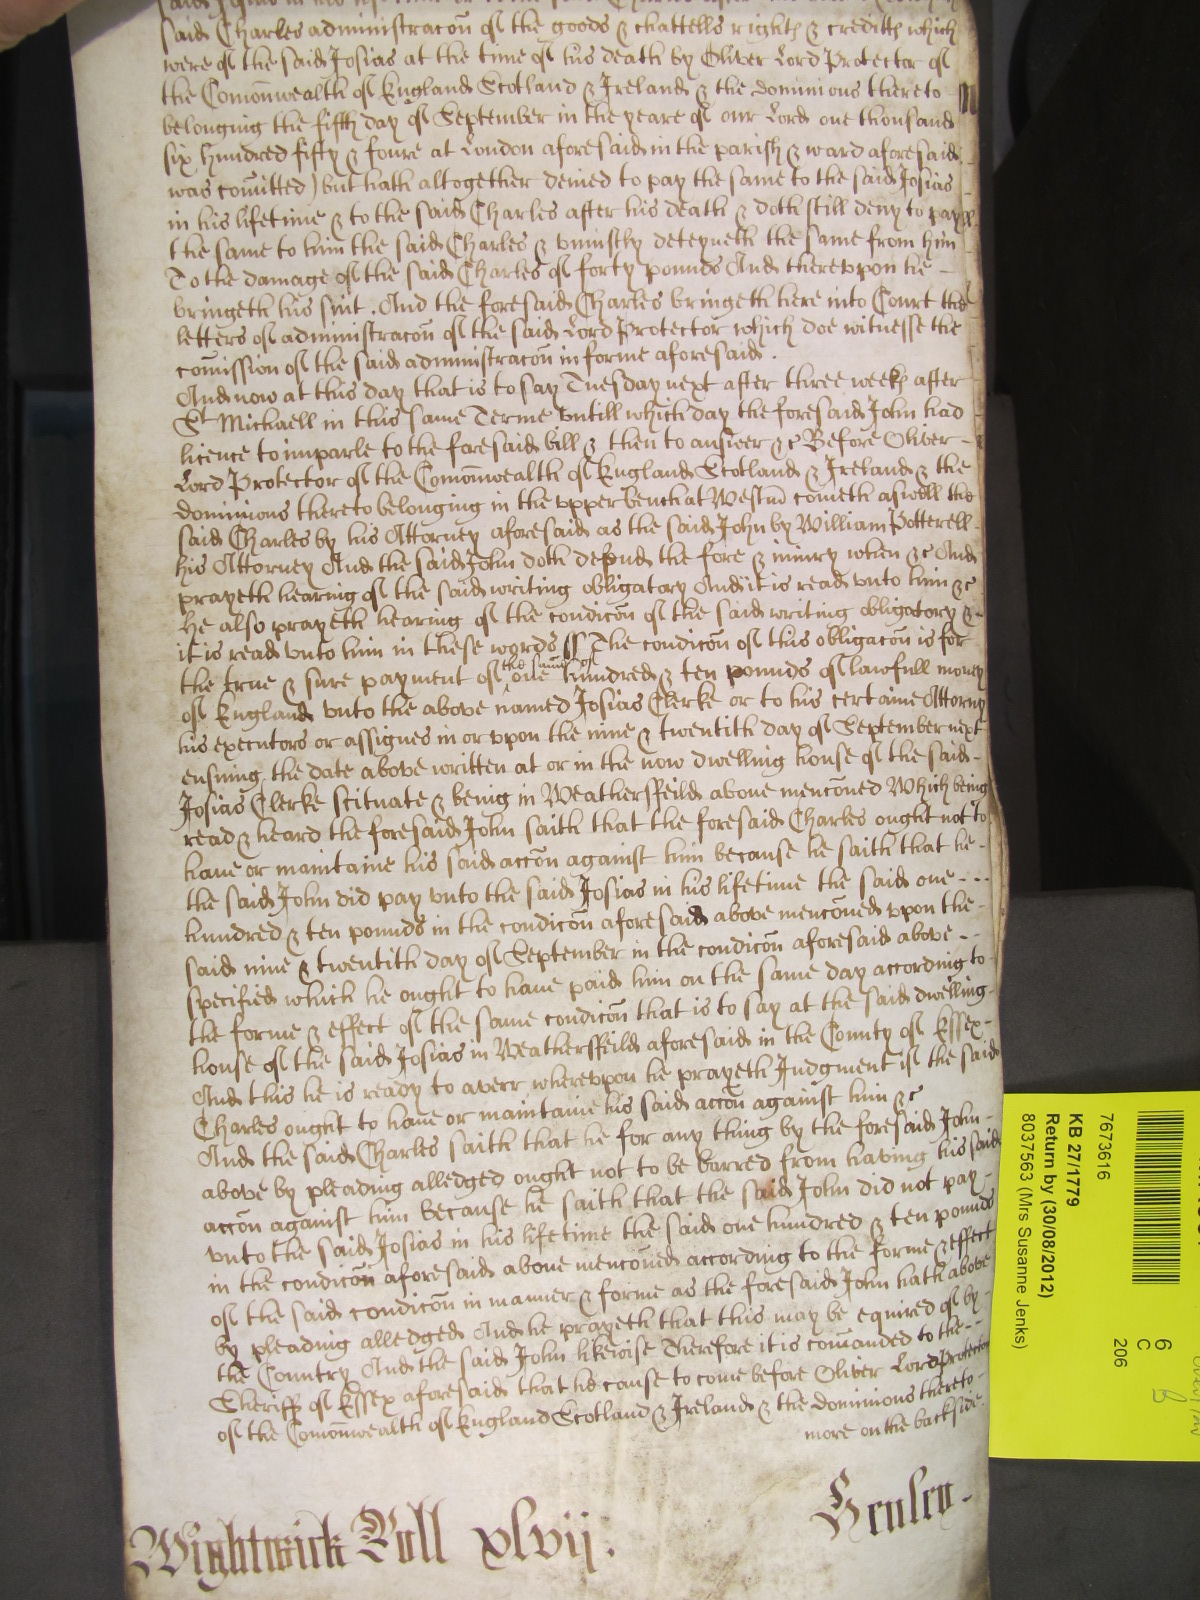 said Charles administracon of the goods & chattells rights & creditts which
were of the said Josias at the time of his death by Oliver Lord Protector of
the Comonwealth of England Scotland & Ireland & the dominions thereto
belonging the fifth day of September in the yeare of our Lord one thousand
six hundred fifty & foure at London aforesaid in the parish & ward aforesaid
was comitted) but hath altogether denied to pay the same to the said Josias
in his lifetime & to the said Charles after his death & doth still deny to pay
the same to him the said Charles & uniustly deteyneth the same from him
To the damage of the said Charles of forty pounds And thereupon he
bringeth his suit. And the foresaid Charles bringeth here into Court the
letters of administracon of the said Lord Protector which doe witnesse the
comission of the said administracon in forme aforesaid.
And now at this day that is to say Tuesday next after three weeks after
St Michaell in this same Terme untill which day the foresaid John had
licence to imparle to the foresaid bill & then to answer &c Before Oliver
Lord Protector of the Comonwealth of England Scotland & Ireland & the
dominions thereto belonging in the upper bench at Westm cometh aswell the
said Charles by his Attorney aforesaid as the said John by William Potterell
his Attorney And the said John doth defend the force & iniury when &c And
prayeth hearing of the said writing obligatory And it is read unto him &c
He also prayeth hearing of the condicon of the said writing obligatory &
it is read unto him in these words ss The condicon of this obligacon is for
the true & sure payment of the summ of one hundred & ten pounds of lawfull money
of England unto the above named Josias Clerke or to his certaine Attorny
his executors or assignes in or upon the nine & twentith day of September next
ensuing the date above written at or in the now dwelling house of the said
Josias Clerke scituate & being in Weathersfeild above menconed Which being
read & heard the foresaid John saith that the foresaid Charles ought not to
have or maintaine his said accon against him because he saith that he
the said John did pay unto the said Josias in his lifetime the said one
hundred & ten pounds in the condicon aforesaid above menconed upon the
said nine & twentith day of September in the condicon aforesaid above
specified which he ought to have paid him on the same day according to
the forme & effect of the same condicon that is to say at the said dwelling
house of the said Josias in Weathersfeild aforesaid in the County of Essex
And this he is ready to averr whereupon he prayeth Judgment if the said
Charles ought to have or maintaine his said accon against him &c
And the said Charles saith that he for any thing by the foresaid John
above by pleading alledged ought not to be barred from having his said
accon against him because he saith that the said John did not pay
unto the said Josias in his lifetime the said one hundred & ten pounds
in the condicon aforesaid above menconed according to the forme & effect
of the said condicon in manner & forme as the foresaid John hath above
by pleading alledged And he prayeth that this may be equired of by
the Country And the said John likewise Therefore it is comanded to the
Sheriff of Essex aforesaid that he cause to come before Oliver Lord Protector
of the Comonwealth of England Scotland & Ireland & the dominions thereto
more on the backside.
Wightwick Roll xlvij.
7673616
KB 27/1779
Return by (30/08/2012)
8037563 (Mrs Susanne Jenks)
6
C
206